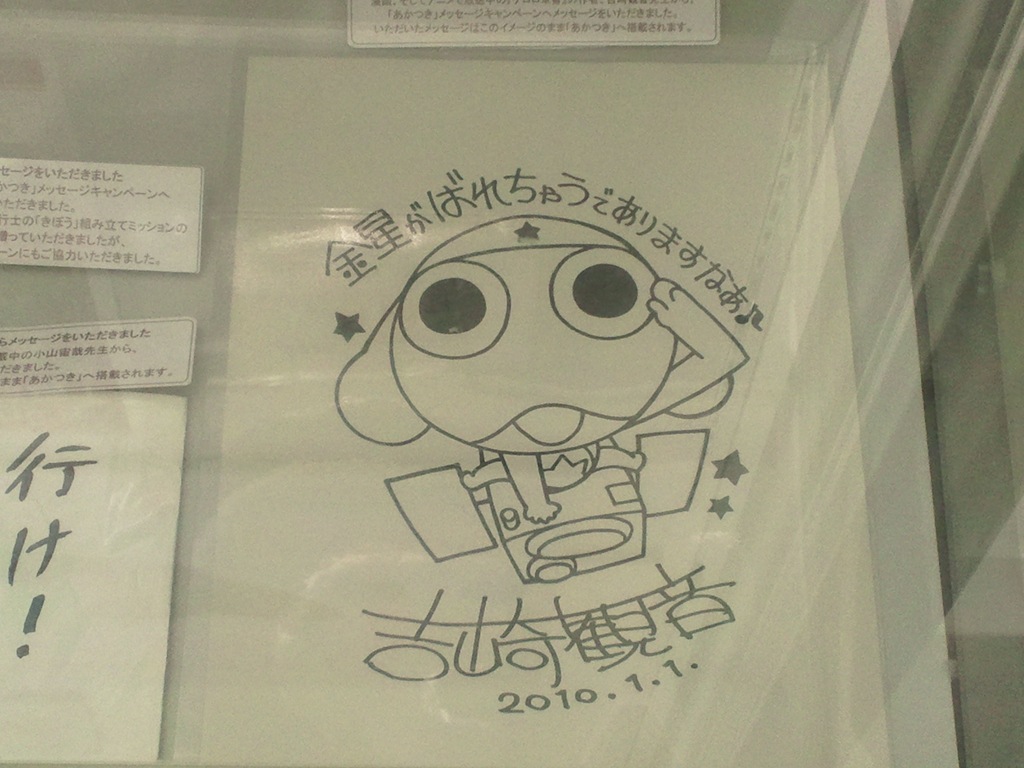 「あかつき」メッセージキャンペーンへメッセージをいただきました。
いただいたメッセージはこのイメージのまま「あかつき」へ搭載されます。
セージをいただきました
かつき」メッセージキャンペーンへ
いただきました。
行士の「きぼう」組み立てミッションの
贈っていただきましたが、
ーンにもご協力いただきました。
らメッセージをいただきました
載中の小山宙哉先生から、
だきました。
まま「あかつき」へ搭載されます。
行け!
金星がばれちゃうでありますなあ♪
吉崎観音
2010.1.1.